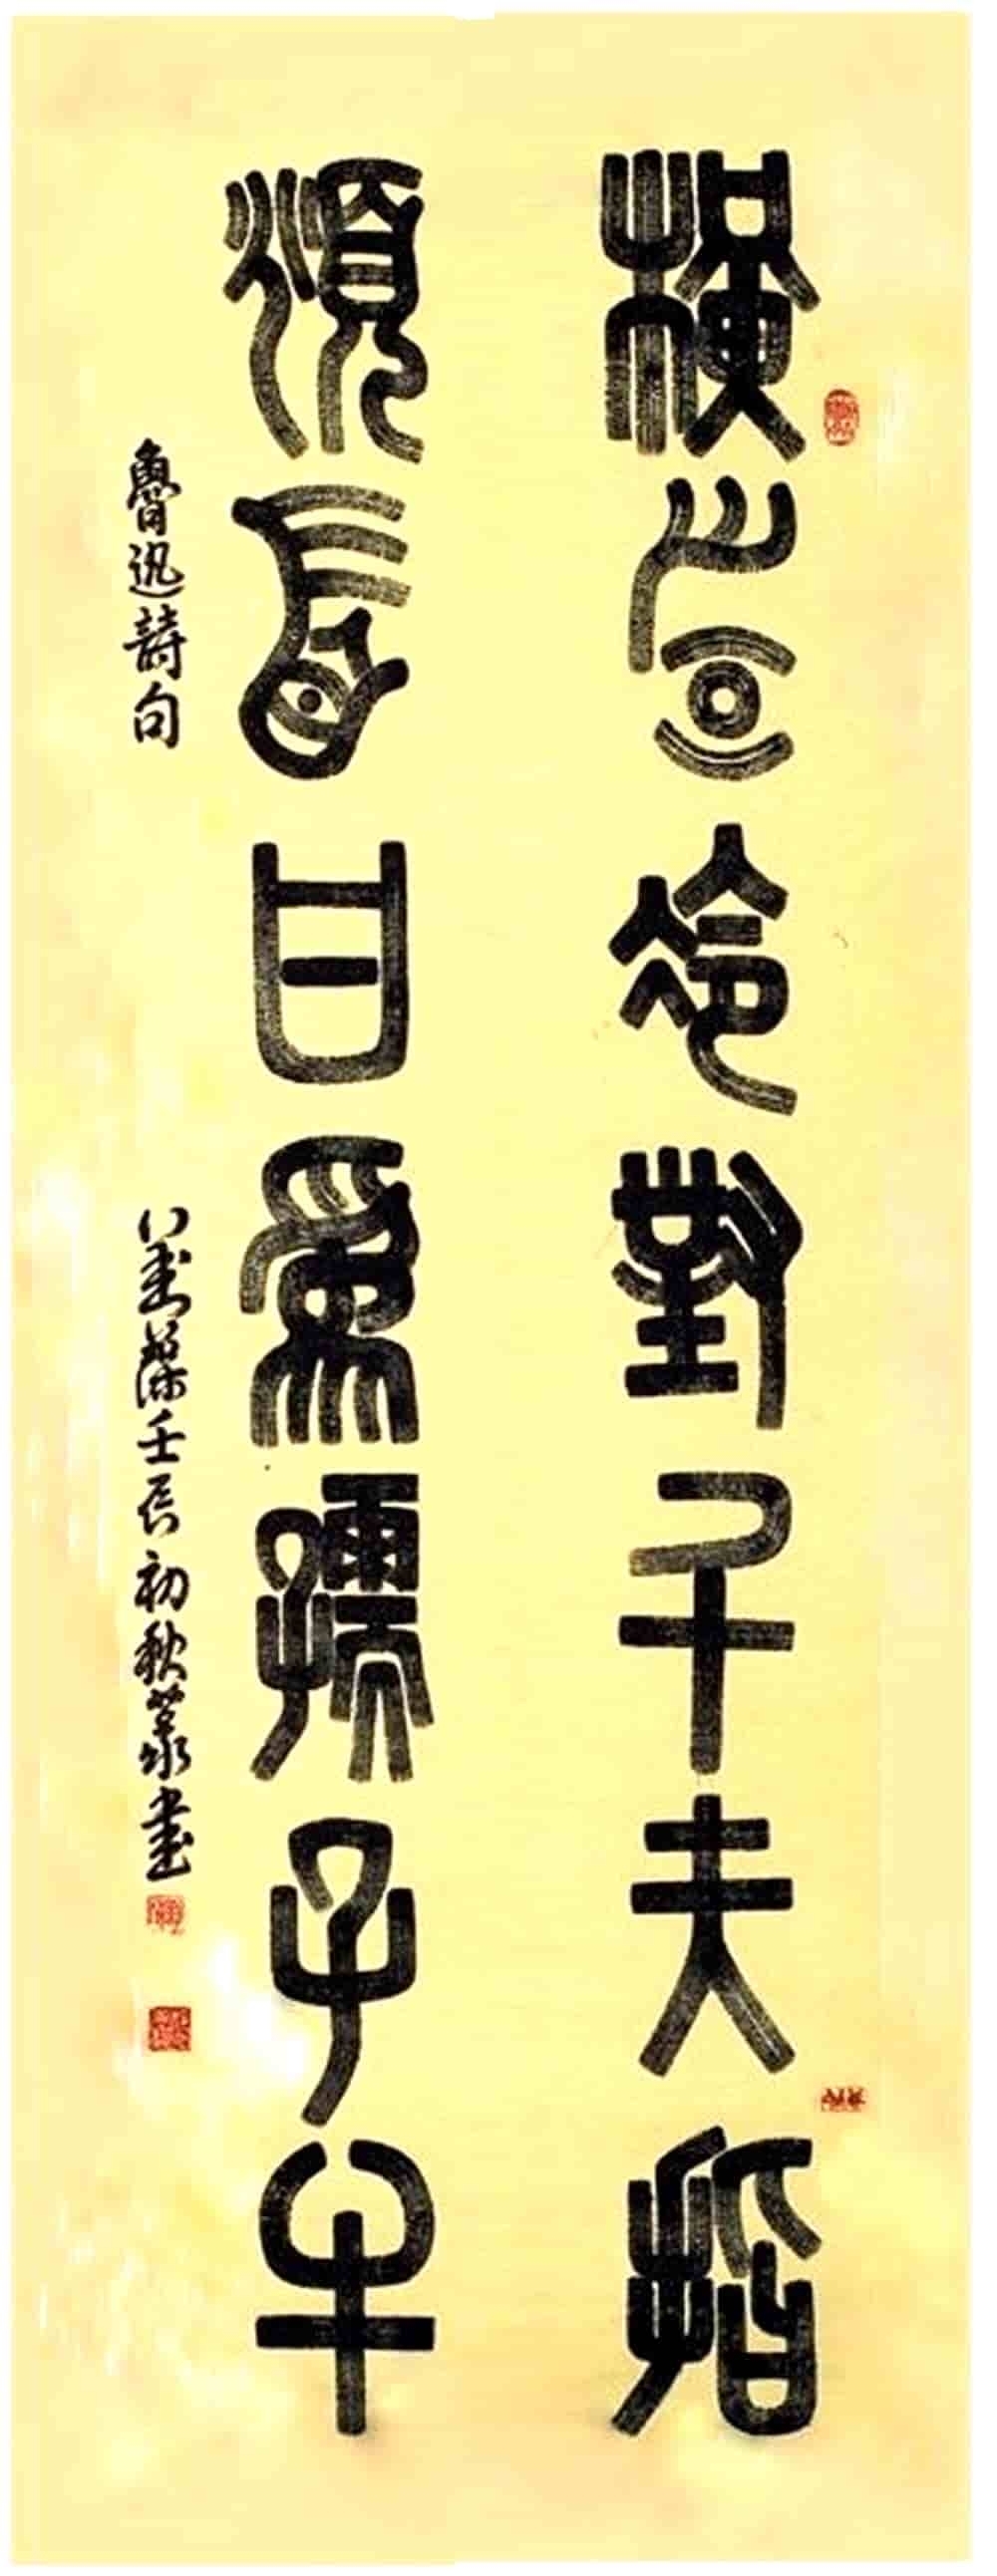 橫眉冷對千夫指
頫首甘爲孺子牛
魯迅詩句
壬辰初秋篆書